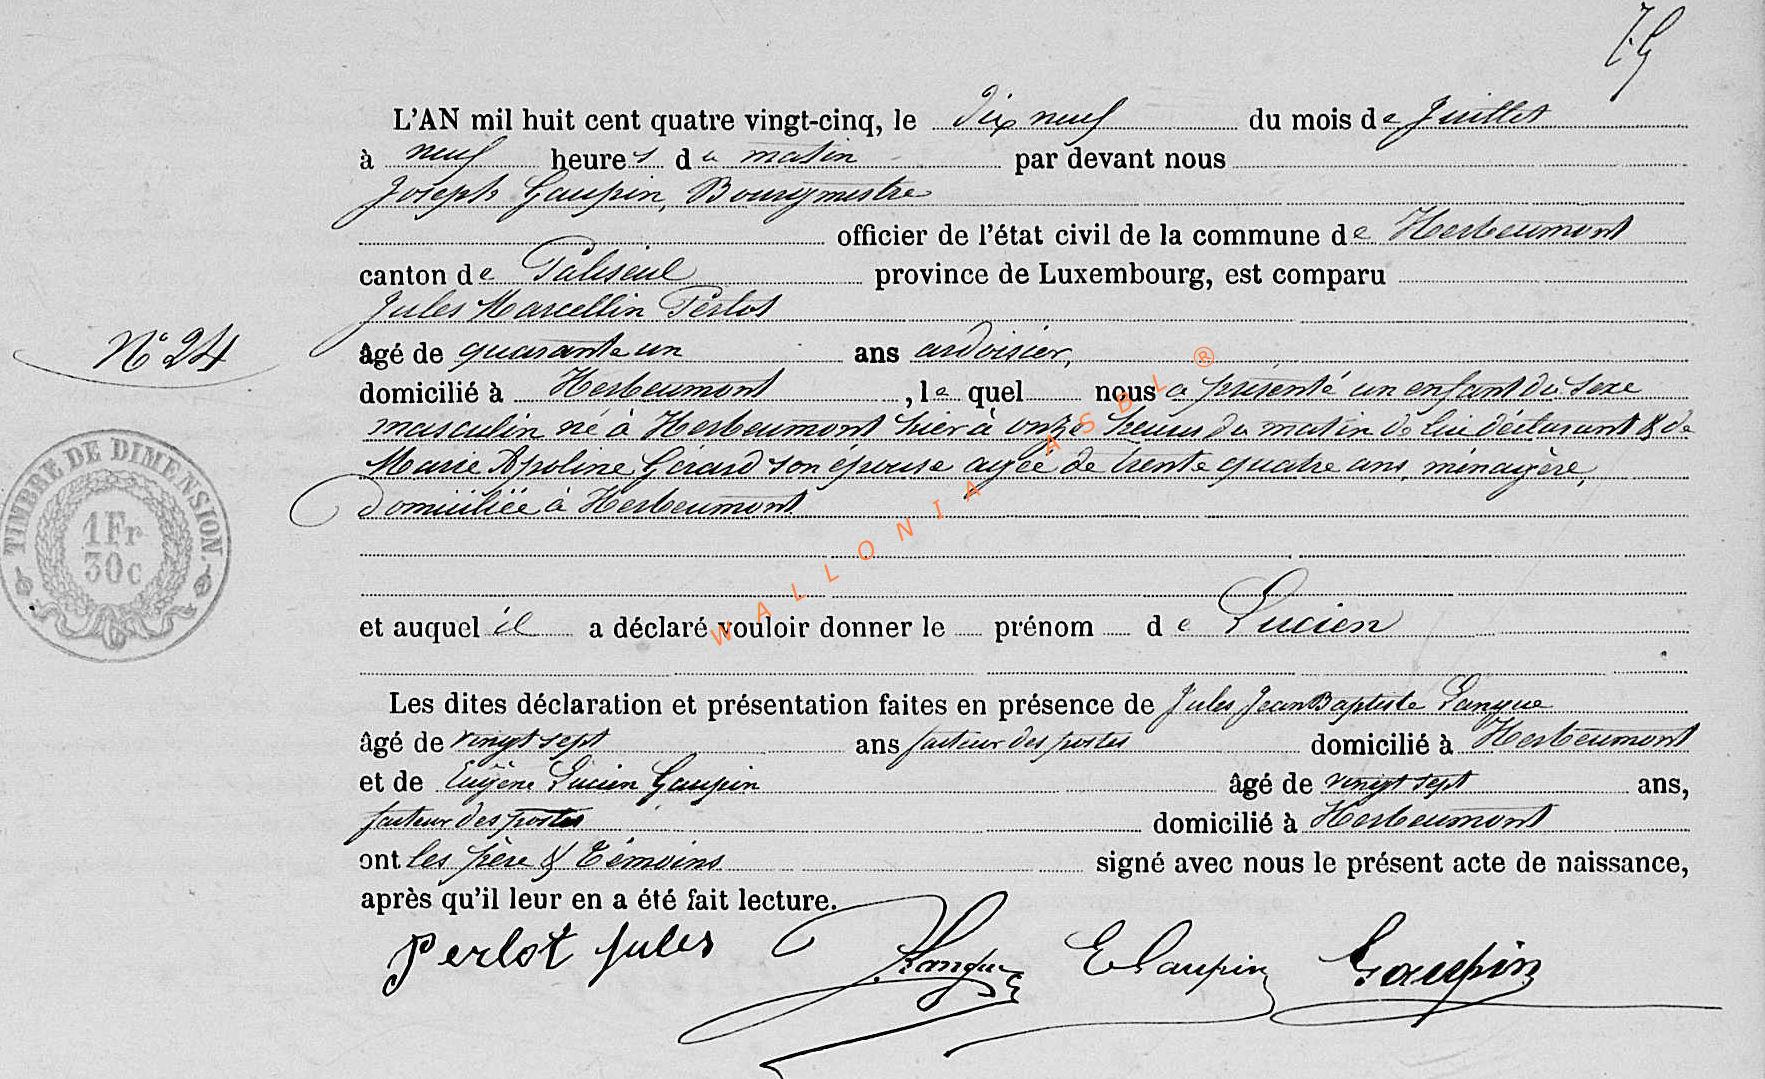 L'AN mil huit cent quatre vingt-cinq, le dix neuf du mois de Juillet
à neuf heures du matin par devant nous
Joseph Gaupin, Bourgmestre
officier de l'état civil de la commune de Herbeumont
canton de Paliseul province de Luxembourg, est comparu
Jules Marcellin Perlot
N° 24
âgé de quarante un ans ardoisier,
domicilié à Herbeumont, lequel nous a présenté un enfant du sexe
masculin né à Herbeumont hier à onze heures du matin de lui déclarant & de
Marie Apoline Gérard son épouse agée de trente quatre ans, ménagère,
domiciliée à Herbeumont
TIMBRE DE DIMENSION.
1 Fr
30 c
WALLONIA ASBL ®
et auquel il a déclaré vouloir donner le prénom de Lucien
Les dites déclaration et présentation faites en présence de Jules Jean Baptiste Langue
âgé de vingt sept ans facteur des postes domicilié à Herbeumont
et de Eugène Lucien Gaupin âgé de vingt sept ans,
facteur des postes domicilié à Herbeumont
ont les père & témoins signé avec nous le présent acte de naissance,
après qu'il leur en a été fait lecture.
Perlot Jules J Langue E Gaupin Gaupin